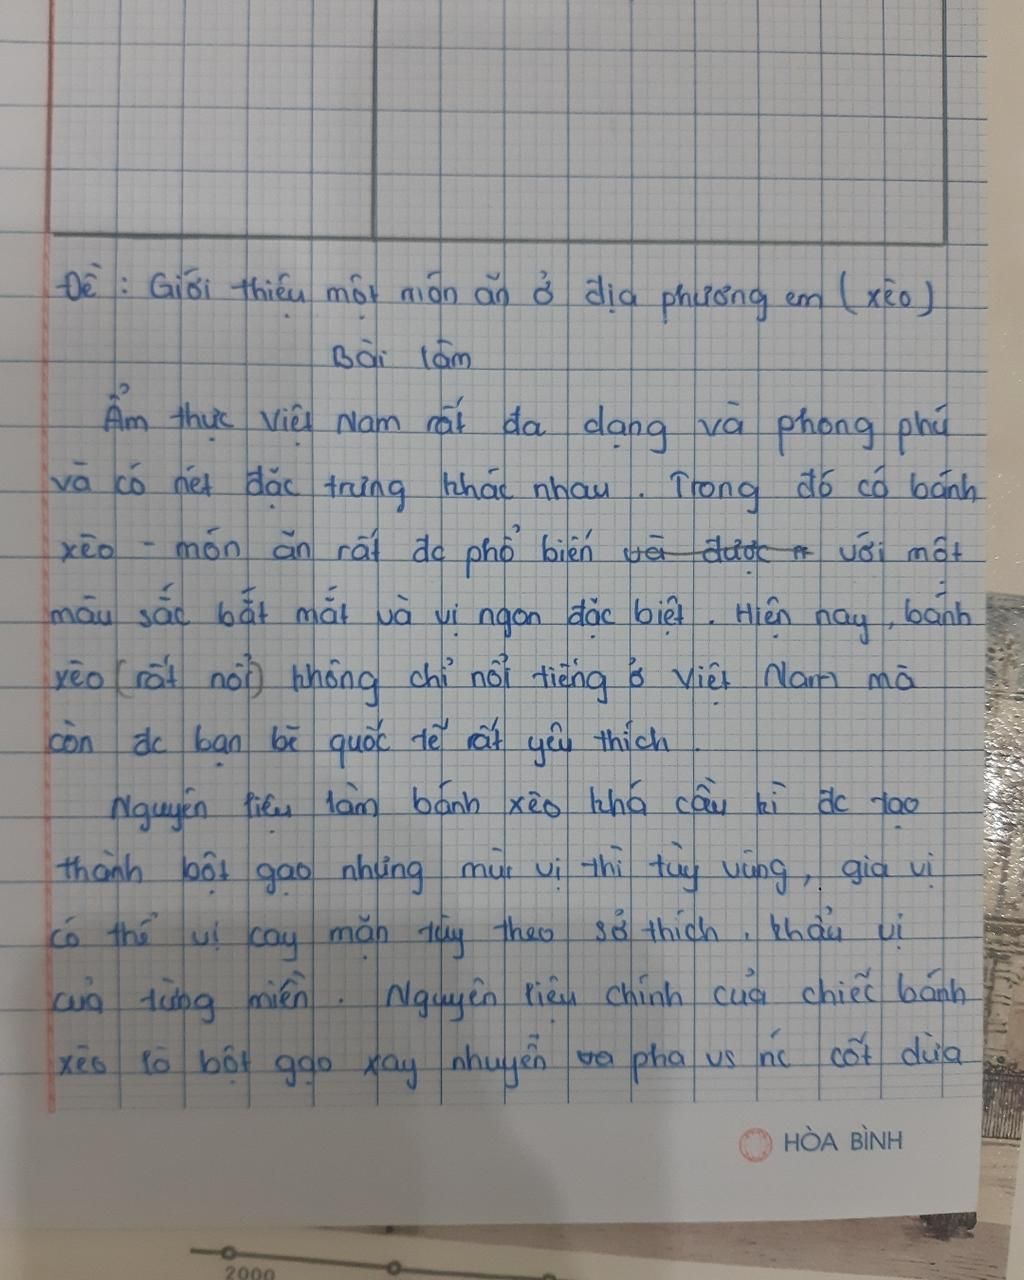 Đề : Giới thiệu một món ăn ở địa phương em (xèo)
Bài làm
Ẩm thực Việt Nam rất đa dạng và phong phú
và có nét đặc trưng khác nhau . Trong đó có bánh
xèo - món ăn rất đc phổ biến và được với một
màu sắc bắt mắt và vị ngon đặc biệt . Hiện nay , bánh
xèo (rất nổi) không chỉ nổi tiếng ở Việt Nam mà
còn đc bạn bè quốc tế rất yêu thích .
Nguyên liệu làm bánh xèo khá cầu kì đc tạo
thành bột gạo nhưng mùi vị thì tùy vùng , gia vị
có thể vị cay mặn tùy theo sở thích , khẩu vị
của từng miền . Nguyên liệu chính của chiếc bánh
xèo là bột gạo xay nhuyễn pha vs nc cốt dừa
HÒA BÌNH
2000